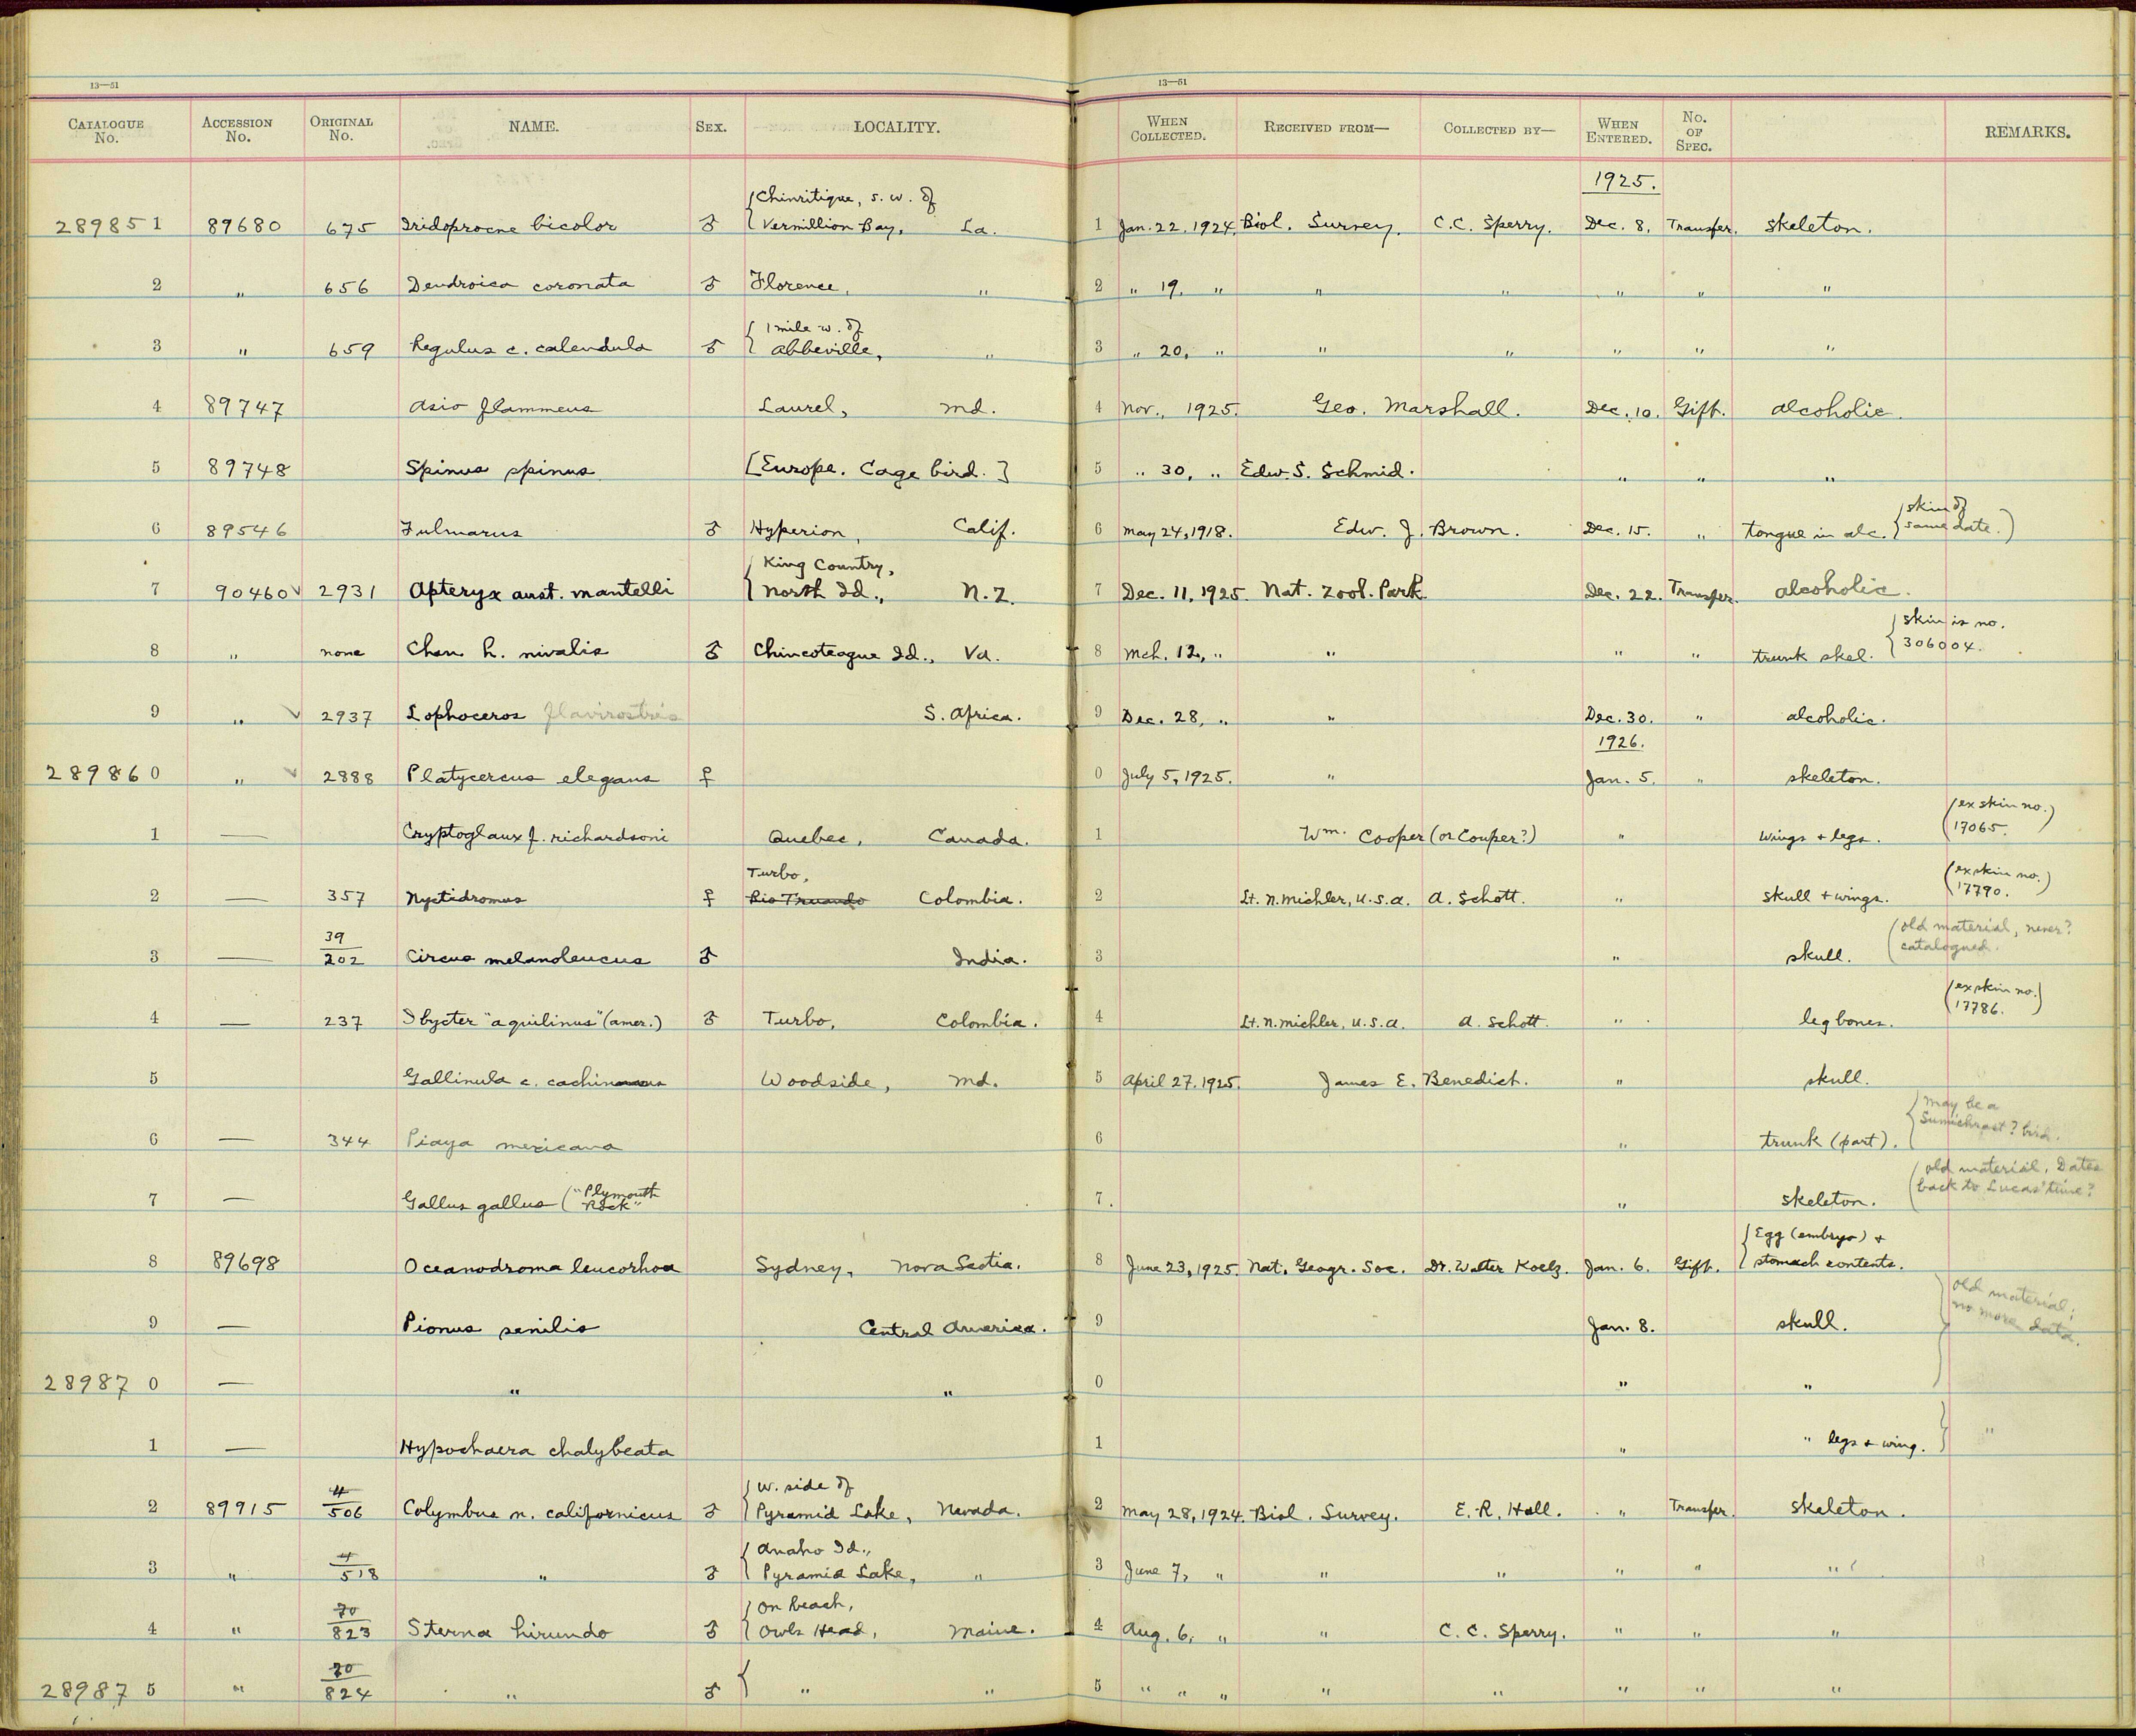 13—51
13—51
CATALOGUE No. ACCESSION No. ORIGINAL No. NAME. SEX. LOCALITY. WHEN COLLECTED. RECEIVED FROM— COLLECTED BY— WHEN ENTERED. No. OF SPEC. REMARKS.
1925.
{Chinritique, s.w. of
289851 89680 675 Iridoprocne bicolor ♂ Vermillion Bay, La. 1 Jan. 22, 1924. Biol. Survey. C.C. Sperry. Dec. 8. Transfer. skeleton.
2 " 656 Dendroica coronata ♂ Florence, " 2 " 19, " " " " " "
{1 mile w. of
3 " 659 Regulus c. calendula ♂ Abbeville, " 3 " 20, " " " " " "
4 89747 Asio flammeus Laurel, Md. 4 Nov., 1925. Geo. Marshall. Dec. 10. Gift. alcoholic.
5 89748 Spinus spinus [Europe. Cage bird.] 5 " 30, " Edw. S. Schmid. " " "
6 89546 Fulmarus ♂ Hyperion, Calif. 6 May 24, 1918. Edw. J. Brown. Dec. 15. " tongue in alc. {skin of same date.)
{King Country,
7 90460✓ 2931 Apteryx aust. mantelli North Id., N.Z. 7 Dec. 11, 1925. Nat. Zool. Park. Dec. 22. Transfer. alcoholic.
8 " none Chen h. nivalis ♂ Chincoteague Id., Va. 8 Mch. 12, " " " " trunk skel. {skin is no. 306004.
9 " ✓ 2937 Lophoceros flavirostris S. Africa. 9 Dec. 28, " " Dec. 30. " alcoholic.
1926.
289860 " ✓ 2888 Platycercus elegans ♀ 0 July 5, 1925. " Jan. 5. " skeleton.
1 — Cryptoglaux f. richardsoni Quebec, Canada. 1 Wm. Cooper (or Couper?) " wings + legs. (ex skin no. 17065.)
Turbo,
2 — 357 Nyctidromus ♀ Rio Truando Colombia. 2 Lt. N. Michler, U.S.A. A. Schott. " skull + wings. (ex skin no. 17790.)
3 — 39/202 Circus melanoleucus ♂ India. 3 " skull. (old material, never? catalogued.
4 — 237 Ibycter "aquilinus" (amer.) ♂ Turbo, Colombia. 4 Lt. N. Michler, U.S.A. A. Schott. " leg bones. (ex skin no. 17786.)
5 Gallinula c. cachinnans Woodside, Md. 5 April 27, 1925. James E. Benedict. " skull.
6 — 344 Piaya mexicana 6 " trunk (part). {May be a Sumichrast? bird.
7 — Gallus gallus ("Plymouth Rock" 7. " skeleton. (old material, Dates back to Lucas' time?
8 89698 Oceanodroma leucorhoa Sydney, Nova Scotia. 8 June 23, 1925. Nat. Geogr. Soc. Dr. Walter Koelz. Jan. 6. Gift. {Egg (embryo) + stomach contents.
9 — Pionus senilis Central America. 9 Jan. 8. skull. } old material; no more data.
289870 — " " 0 " "
1 — Hypochaera chalybeata 1 " " legs + wing. } "
{W. side of
2 89915 4/506 Colymbus n. californicus ♂ Pyramid Lake, Nevada. 2 May 28, 1924. Biol. Survey. E. R. Hall. " Transfer. skeleton.
{Anaho Id.,
3 " 4/518 " ♂ Pyramid Lake, " 3 June 7, " " " " " "
{On beach,
4 " 70/823 Sterna hirundo ♂ Owls Head, Maine. 4 Aug. 6, " " C. C. Sperry. " " "
289875 " 70/824 " ♂ { " " 5 " " " " " " " "